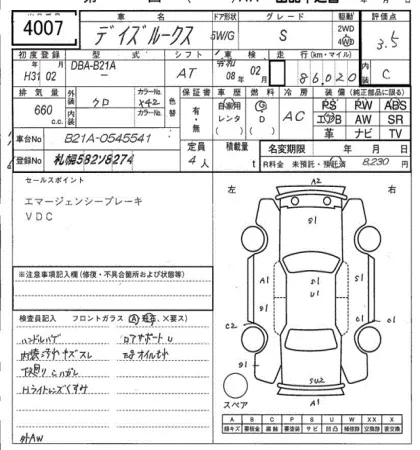 4007
車名
デイズルークス
ドア形状
5W/G
グレード
S
駆動
2WD
4WD
評価点
3.5
初度登録
H31 02
年 月
型式
DBA-B21A
シフト
AT
車検
令和
08 02
年 月
走行 (km・マイル)
86,020
内装
C
排気量
660
c.c.
外装
内装
クロ
カラーNo.
X42
カラーNo.
色替
保証書
有・無
車歴
自家用
レンタ
燃料
G
D
冷房
AC
装備(純正部品に限る)
PS PW ABS
エアB AW SR
革 ナビ TV
車台No
B21A-0545541
登録No
札幌582ソ8274
定員
4人
積載量
t
名変期限
年 月
R料金 未預託・預託済
8,230円
セールスポイント
エマージェンシーブレーキ
VDC
※注意事項記入欄(修復・不具合箇所および状態等)
検査員記入 フロントガラス (A 飛石、×要ス)
ハンドルハゲ
内装汚れキズスレ
下廻りサビ
Hライトレンズくすみ
外AW
ロアサポートU
左 右
A2
S1
A1
S1
C2
S1
U1
C1
C1
S1
SU2
A1
スペア
A B C P S U W X XX
線キズ 要板金 腐蝕 要塗装 サビ 凹凸 補修跡 要交換 表交換